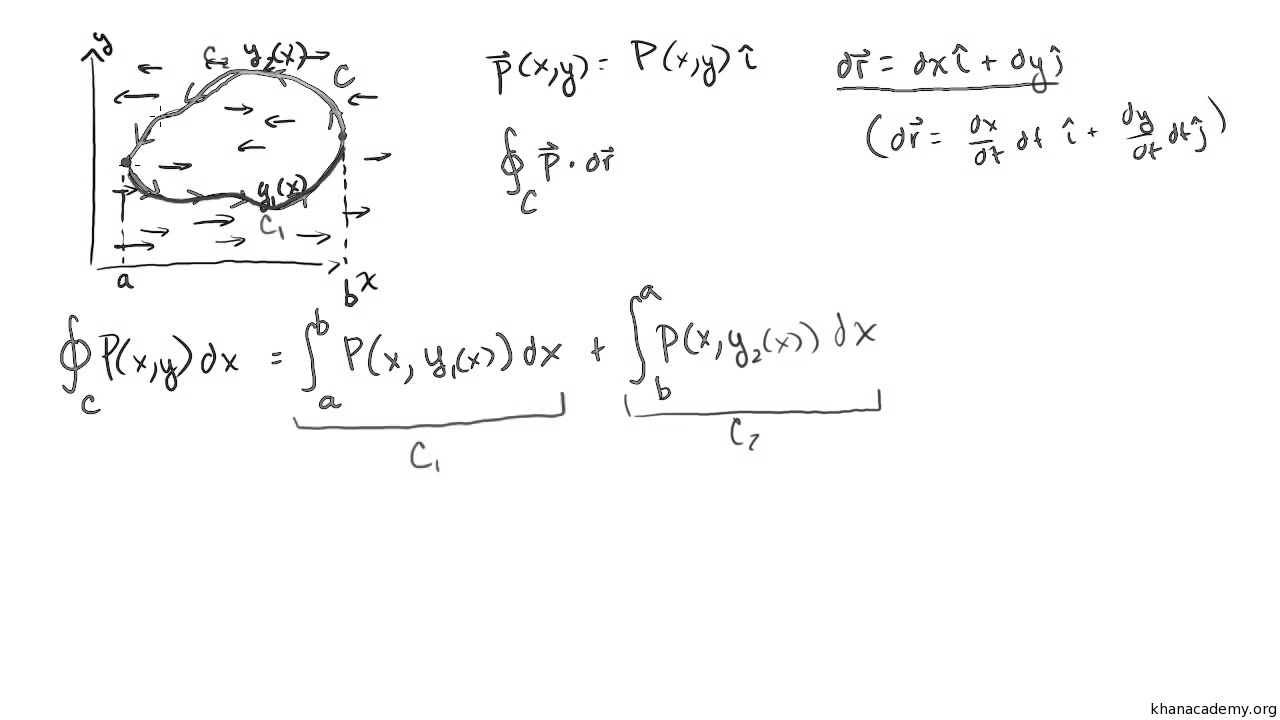 y
C₂ y₂(x) C
y₁(x)
C₁
a b x
p⃗(x,y) = P(x,y) î
∮_C p⃗ · dr⃗
dr⃗ = dx î + dy ĵ
(dr⃗ = dx/dt dt î + dy/dt dt ĵ)
∮_C P(x,y) dx = ∫_a^b P(x, y₁(x)) dx + ∫_b^a P(x, y₂(x)) dx
C₁ C₂
khanacademy.org